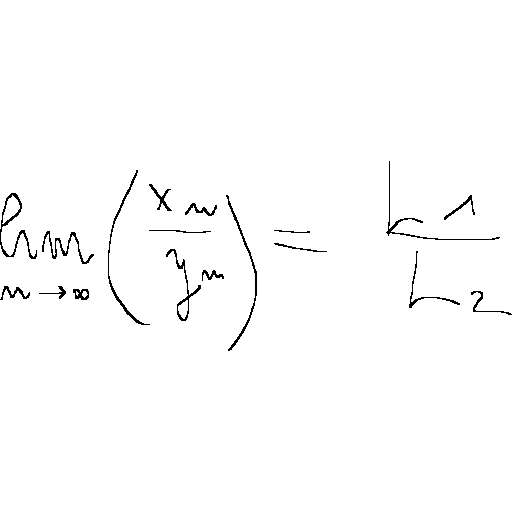 \lim_{n \to \infty} \left( \frac{x_n}{y_n} \right) = \frac{L_1}{L_2}